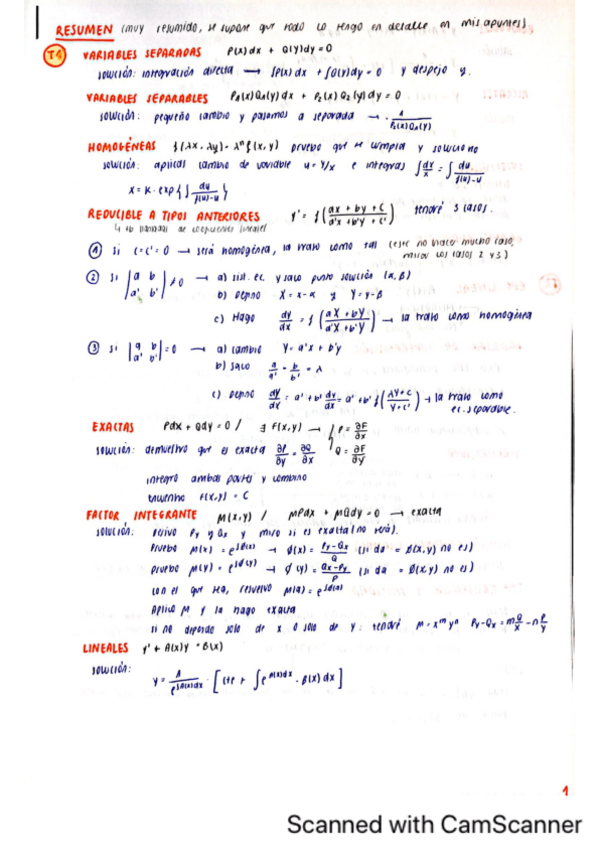 RESUMEN (muy resumido, se supone que todo lo tengo en detalle en mis apuntes)
T1 VARIABLES SEPARADAS P(x)dx + Q(y)dy = 0
solución: integración directa → ∫P(x)dx + ∫Q(y)dy = 0 y despejo y.
VARIABLES SEPARABLES P₁(x)Q₁(y)dx + P₂(x)Q₂(y)dy = 0
solución: pequeño cambio y pasamos a separada → · 1/P₂(x)Q₁(y)
HOMOGÉNEAS f(λx, λy) = λⁿf(x,y) pruebo que se cumpla y soluciono
solución: aplicas cambio de variable u = y/x e integras ∫dx/x = ∫du/f(u)-u
x = k · exp{∫ du/f(u)-u}
REDUCIBLE A TIPOS ANTERIORES y' = f(ax + by + c / a'x + b'y + c') tendré 3 casos.
↳ tb llamadas de coeficientes lineales
① si c = c' = 0 → será homogénea, la trato como tal (este no hacer mucho caso,
mirar los casos 2 y 3)
② si |a b / a' b'| ≠ 0 → a) sist. ec. y saco punto solución (α, β)
b) Defino X = x-α y Y = y-β
c) Hago dY/dX = f(aX + bY / a'X + b'Y) → la trato como homogénea
③ si |a b / a' b'| = 0 → a) cambio Y = a'x + b'y
b) saco a/a' = b/b' = λ
c) Defino dY/dx = a' + b' dy/dx = a' + b' f(λY + c / Y + c') → la trato como
ec. separable.
EXACTAS Pdx + Qdy = 0 / ∃ F(x,y) → { P = ∂F/∂x
Q = ∂F/∂y
solución: demuestro que es exacta ∂P/∂y = ∂Q/∂x
integro ambas partes y combino
F(x,y) = C
FACTOR INTEGRANTE M(x,y) / MPdx + MQdy = 0 → exacta
solución: Derivo Py y Qx y miro si es exacta (no será).
Pruebo M(x) = e^∫ø(x) → ø(x) = Py - Qx / Q (si da = ø(x,y) no es)
pruebo M(y) = e^∫ø(y) → ø(y) = Qx - Py / P (si da = ø(x,y) no es)
con el que sea, resuelvo M(a) = e^∫ø(a)
Aplico M y la hago exacta
si no depende solo de x o solo de y: tendré M = xᵐyⁿ Py - Qx = m Q/x - n P/y
LINEALES y' + A(x)y = B(x)
solución: y = 1/e^∫A(x)dx · [cte + ∫e^∫A(x)dx · B(x)dx]
1
Scanned with CamScanner